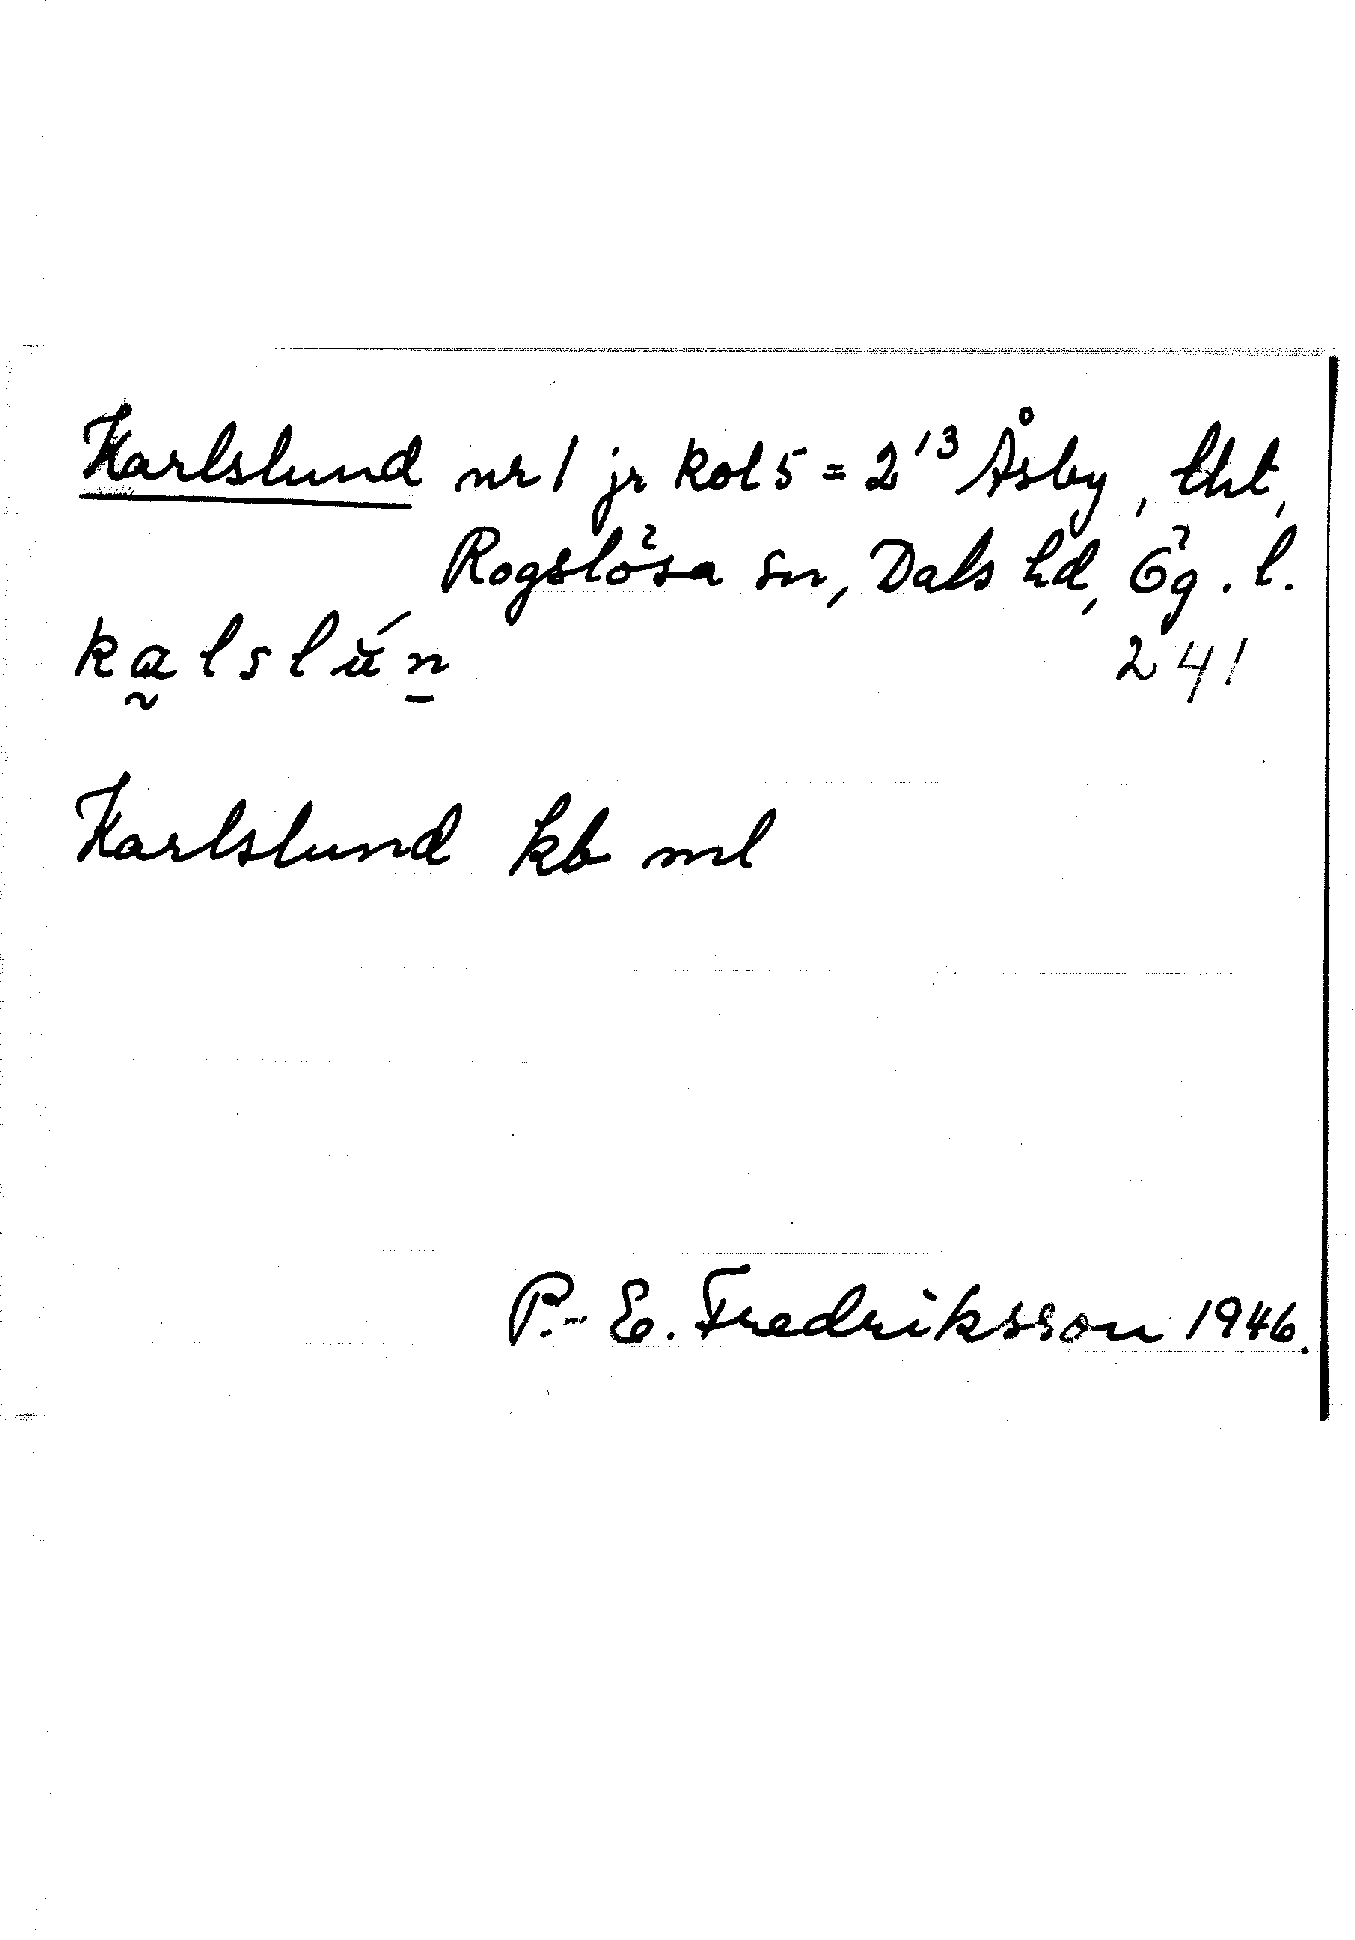 Karlslund nr 1 jr kol 5 = 2¹³ Åsby, lht,
Rogslösa sn, Dals hd, Ög. l.
ka̰lslŭ́n̲ 241
Karlslund kb ml
P.-E. Fredriksson 1946.